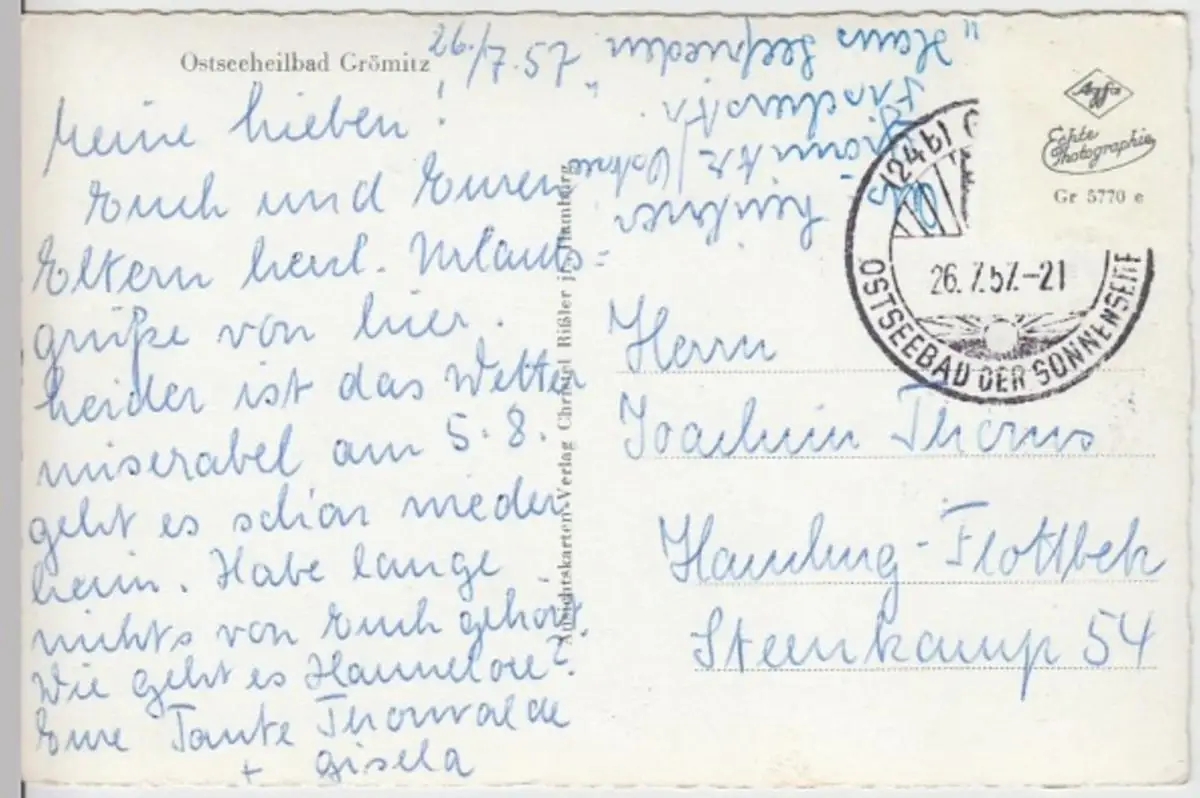 Ostseeheilbad Grömitz
26./7.57
Meine Lieben!
Euch und Euren
Eltern herzl. Urlaubs=
grüße von hier.
Leider ist das Wetter
miserabel am 5.8.
geht es schon wieder
heim. Habe lange
nichts von Euch gehört.
Wie geht es Hannelore?
Eure Tante Thorwalde
+ Gisela
Ansichtskarten-Verlag Christel Rißler jr., Hamburg
Grömitz/Ostsee
"Haus Seefrieden"
Agfa
Echte
Photographie
Gr 5770 e
(24b)
26.7.57.-21
OSTSEEBAD DER SONNENSEITE
Herrn
Joachim Thorns
Hamburg-Flottbek
Steenkamp 54